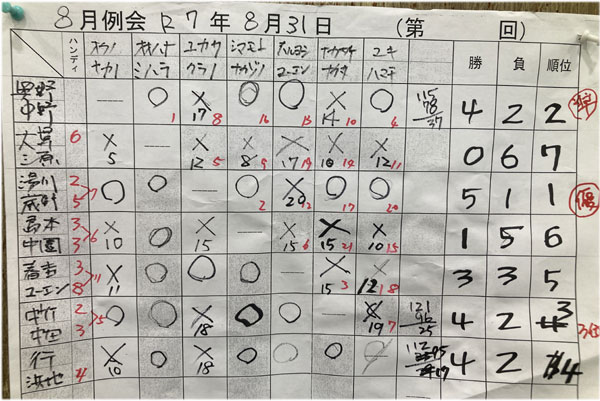 8月例会 R7年8月31日 (第 回)
ハンディ オクノ ナカノ オオハナ ミハラ ユカワ クラノ シマモト ナカゾノ ユーエン ナカタケ ナカタ ユキ ハマチ 勝 負 順位
奥野 中野 — ○ 1 × 17 8 ○ 16 ○ 13 × 14 10 ○ 4 115 78 37 4 2 2
三原 6 × 5 — × 12 5 × 8 9 × 17 × 10 14 × 12 11 0 6 7
湯川 蔵野 2 5 7 ○ ○ — ○ 2 × 20 ○ 17 ○ 20 5 1 1 優
島本 中園 3 3 6 × 10 ○ × 15 — × 15 6 × 15 21 × 10 15 1 5 6
ユーエン 3 8 11 × 11 ○ ○ ○ — × 15 3 × 12 18 3 3 5
中竹 中田 2 3 5 ○ ○ × 18 ○ ○ — × 19 7 121 96 25 4 2 3
行 浜地 4 × 10 ○ × 18 ○ ○ ○ — 112 95 17 4 2 4